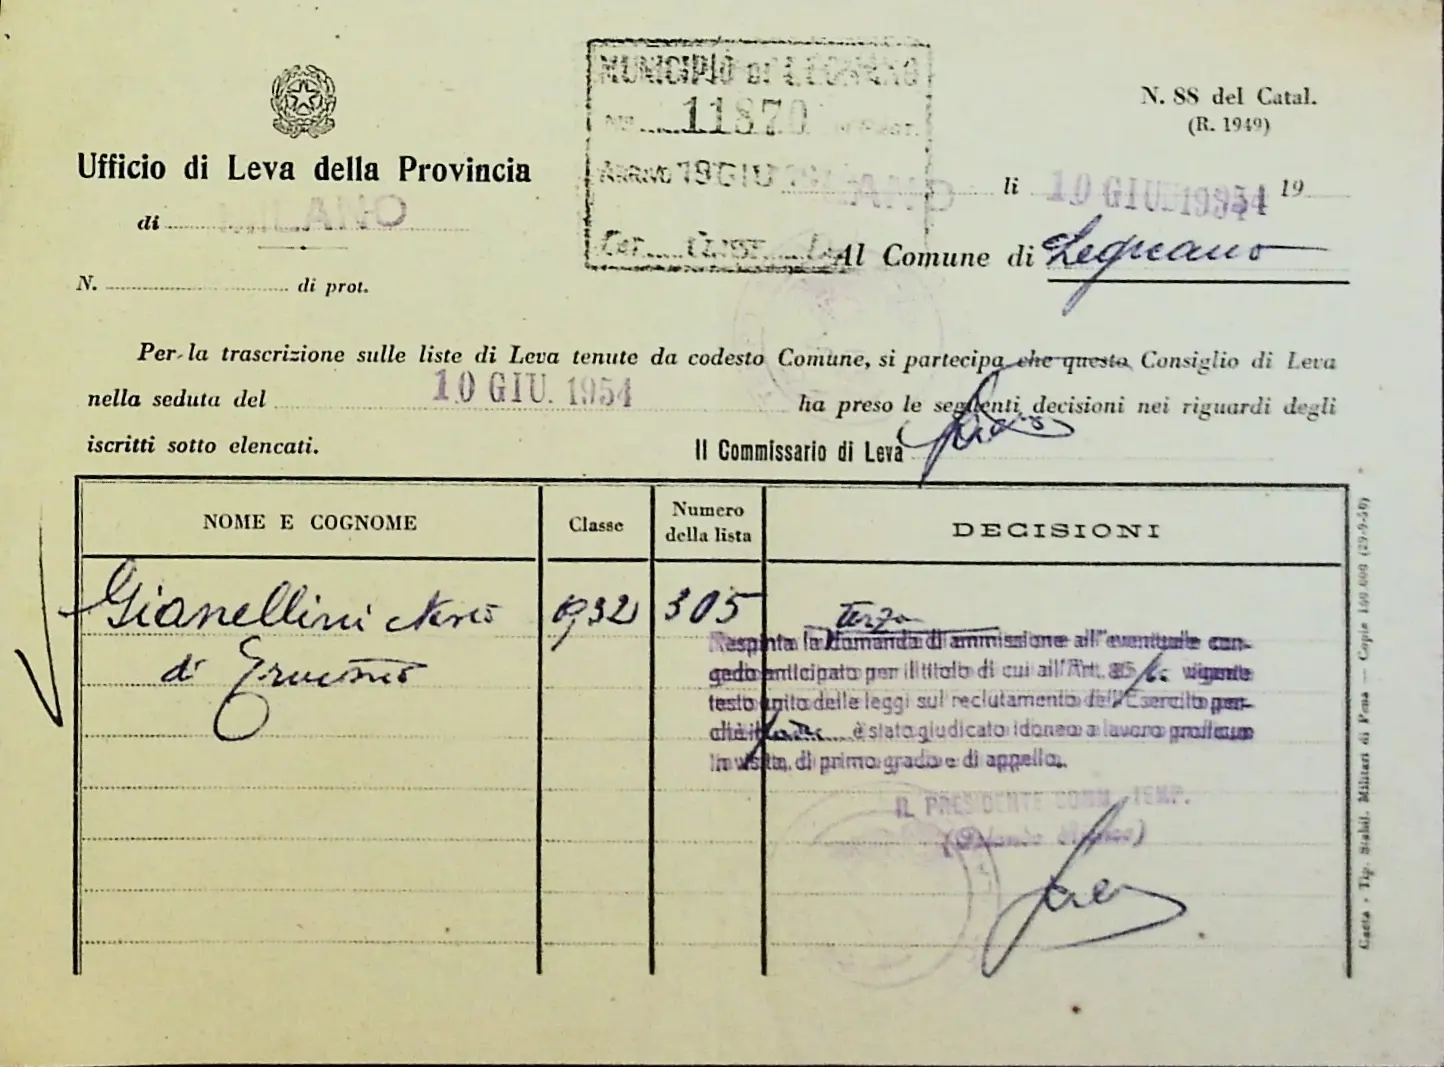 MUNICIPIO DI LEGNANO
N° 11870 di Prot.
Arrivo 19 GIU 19
Cat. Classe
N. 88 del Catal.
(R. 1949)
Ufficio di Leva della Provincia
di MILANO
N. di prot.
MILANO li 10 GIU. 1954 19
Al Comune di Legnano
Per la trascrizione sulle liste di Leva tenute da codesto Comune, si partecipa che questo Consiglio di Leva
nella seduta del 10 GIU. 1954 ha preso le seguenti decisioni nei riguardi degli
iscritti sotto elencati.
Il Commissario di Leva
NOME E COGNOME Classe Numero della lista DECISIONI
Gianellini 1932 305 terza
di
Respinta la domanda di ammissione all'eventuale con-
gedo anticipato per il titolo di cui all'Art. 85 vigente
testo unico delle leggi sul reclutamento dell'Esercito per-
chè il è stato giudicato idoneo a lavoro proficuo
in visita di primo grado e di appello.
IL PRESIDENTE COMM. TEMP.
Gaeta - Tip. Stabil. Militari di Pena — Copie 100.000 (29-9-50)